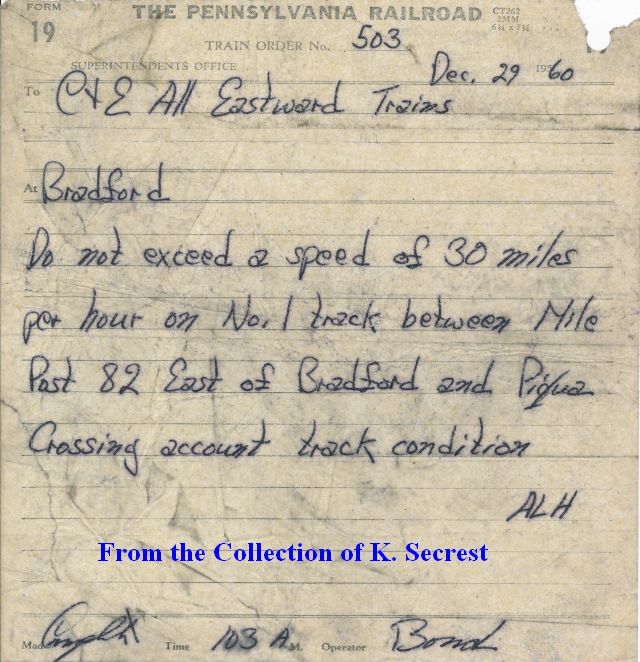 FORM 19
THE PENNSYLVANIA RAILROAD
CT262
2MM
6¾ x 7¼
TRAIN ORDER No. 503
SUPERINTENDENTS OFFICE
Dec. 29 1960
To C+E All Eastward Trains
At Bradford
Do not exceed a speed of 30 miles
per hour on No. 1 track between Mile
Post 82 East of Bradford and Piqua
Crossing account track condition
ALH
From the Collection of K. Secrest
Made Complt Time 103 A M. Operator Bond